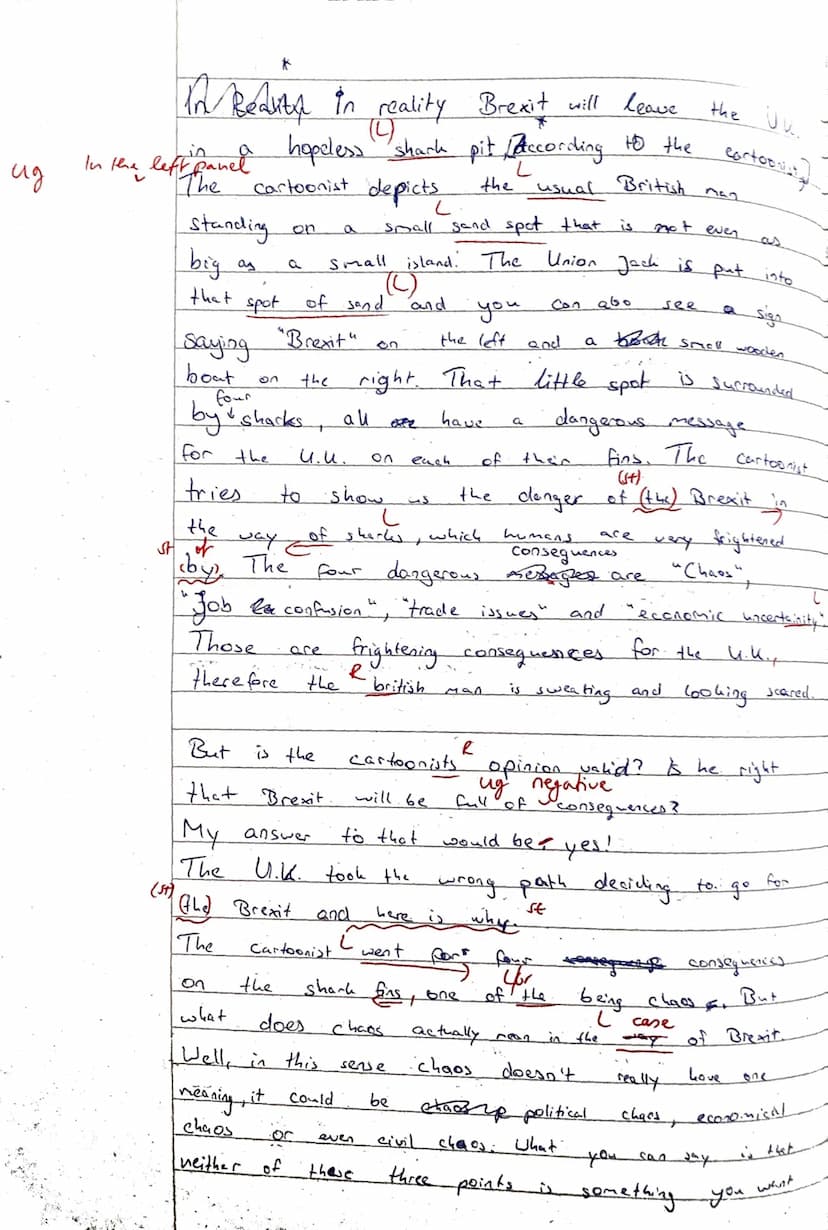 *
In reality Brexit will leave the U.K.
(L)
in a hopeless shark pit, According to the cartoonist
ug In the left panel
L
The cartoonist depicts the usual British man
L
standing on a small sand spot that is not even as
big as a small island. The Union Jack is put into
(L)
that spot of sand and you can also see a sign
saying "Brexit" on the left and a small wooden
boat on the right. That little spot is surrounded
four
by sharks, all have a dangerous message
for the U.K. on each of their fins. The cartoonist
(st)
tries to show us the danger of (the) Brexit in
L
the way of sharks, which humans are very frightened
st of consequences
(by). The four dangerous are "Chaos",
L
"Job confusion", "trade issues" and "economic uncertainity".
Those are frightening consequences for the U.K.,
R
therefore the british man is sweating and looking scared.
R
But is the cartoonists opinion valid? Is he right
ug negative
that Brexit will be full of consequences?
My answer to that would be yes!
The U.K. took the wrong path deciding to go for
(st) st
(the) Brexit and here is why.
L
The cartoonist went for four consequences
on the shark fins, one of the being chaos. But
L case
what does chaos actually mean in the way of Brexit.
Well, in this sense chaos doesn't really have one
meaning, it could be political chaos, economical
chaos or even civil chaos. What you can say is that
neither of these three points is something you want